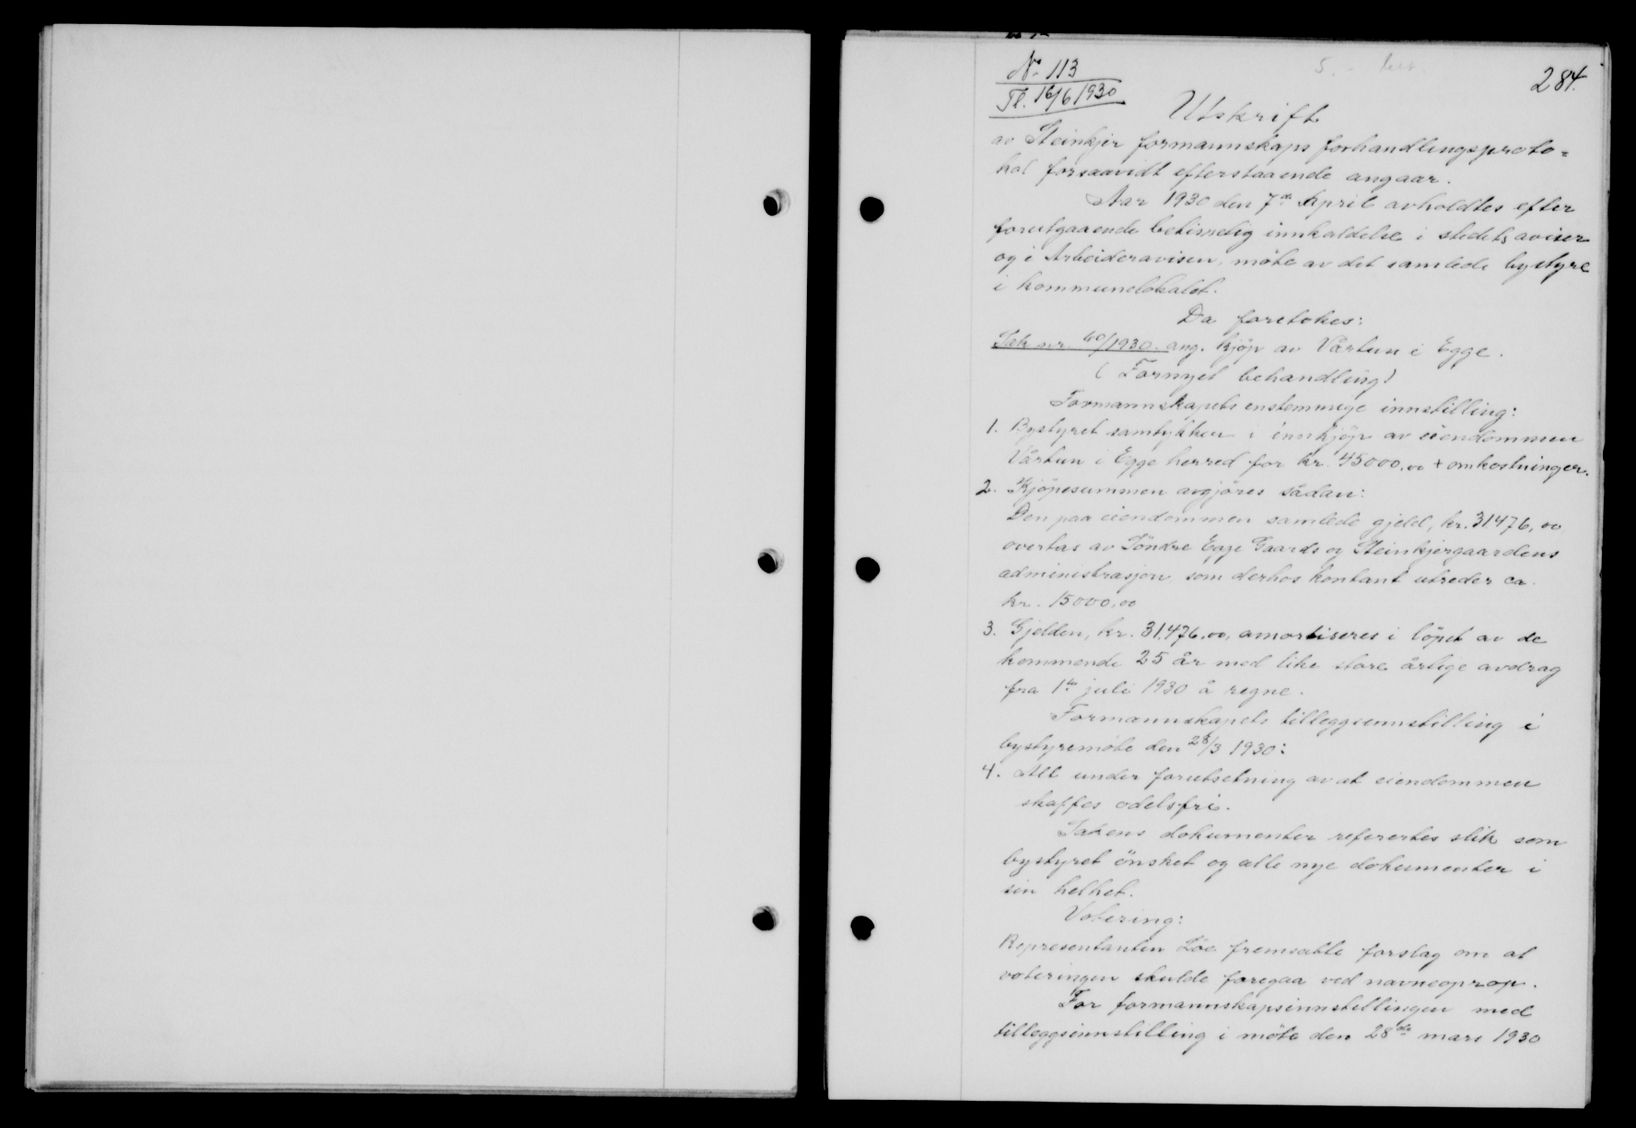 284.
No 113
Tl. 16/6 1930
Utskrift
av Steinkjer formannskaps forhandlingsproto=
kol forsaavidt efterstaaende angaar.
Aar 1930 den 7de April avholdtes efter
forutgaaende betimelig innkaldelse i stedets aviser
og i Arbeideravisen, møte av det samlede bystyre
i kommunelokalet.
Da foretokes:
Sak nr. 40/1930 ang. kjøp av Vårtun i Egge.
(Fornyet behandling)
Formannskapets enstemmige innstilling:
1. Bystyret samtykker i innkjøp av eiendommen
Vårtun i Egge herred for kr. 45000,00 + omkostninger.
2. Kjøpesummen avgjøres sådan:
Den paa eiendommen samlede gjeld, kr. 31476,00
overtas av Söndre Egge Gaards og Steinkjergaardens
administrasjon som derhos kontant utreder ca.
kr. 15000,00
3. Gjelden, kr. 31.476,00, amortiseres i löpet av de
kommende 25 år med like store årlige avdrag
fra 1ste juli 1930 å regne.
Formannskapets tilleggsinnstilling i
bystyremöte den 28/3 1930:
4. Alt under forutsetning av at eiendommen
skaffes odelsfri.
Sakens dokumenter referertes slik som
bystyret önsket og alle nye dokumenter i
sin helhet.
Votering:
Representanten Löe fremsatte forslag om at
voteringen skulde foregaa ved navneoprop.
For formannskapsinnstillingen med
tilleggsinnstilling i möte den 28de mars 1930